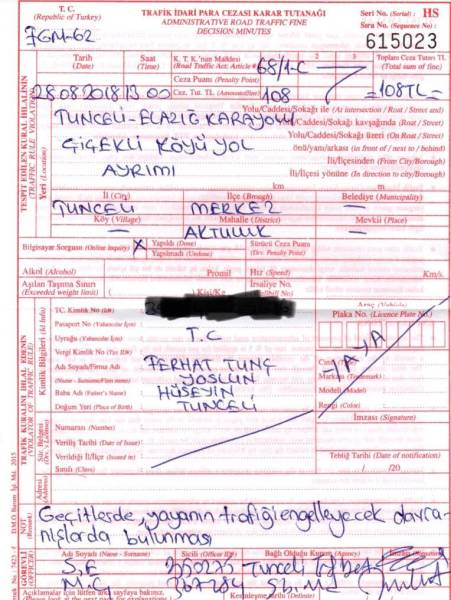 T. C.
(Republic of Turkey)
TRAFİK İDARİ PARA CEZASI KARAR TUTANAĞI
ADMINISTRATIVE ROAD TRAFFIC FINE
DECISION MINUTES
Seri No. (Serial) : HS
Sıra No. (Sequence No) :
615023
FGM-62
Tarih (Date) Saat (Time) K. T. K.'nın Maddesi (Road Traffic Act. Article) 68/1-C 2 3 Toplam Ceza Tutarı TL (Total sum of fine)
Ceza Puanı (Penalty Point)
28.08.2018 13 00 Cez. Tut. TL 108 =108TL=
TESPİT EDİLEN KURAL İHLALİNİN
(TRAFFIC RULE VIOLATION)
Yeri (Location)
Yolu/Caddesi/Sokağı ile (At intersection / Road / Street and)
TUNCELİ-ELAZIĞ KARAYOLU Yolu/Caddesi/Sokağı kavşağında (Road / Street)
Yolu/Caddesi/Sokağı Üzeri (On Road / Street)
ÇİÇEKLİ KÖYÜ YOL önü/yanı/arkası (in front of / next to / behind)
İl/İlçesinden (From City/Borough)
AYRIMI İl/İlçesi yönüne (In direction to city/Borough)
km m
İl (City) İlçe (Brough) Belediye (Municipality)
TUNCELİ MERKEZ
Köy (Village) Mahalle (District) Mevkii (Place)
AKTULUK
Bilgisayar Sorgusu (Online inquiry) X Yapıldı (Done) Sürücü Ceza Puanı
Yapılmadı (Undone) (Drv. Penalty Point)
Alkol (Alcohol) Promil Hız (Speed) Km/s.
Aşılan Taşıma Sınırı Kişi/Kg İrsaliye No.
(Exceeded weight limit)
TRAFİK KURALINI İHLAL EDENİN
(VIOLATOR OF TRAFFIC RULE)
Kimlik Bilgileri (Id Info)
TC. Kimlik No (ID#) : Araç (Vehicle)
Pasaport No (Yabancılar İçin) : Plaka No. (Licence Plate No.)
Uyruğu (Yabancılar İçin) : T.C
Vergi Kimlik No (Tax ID#) : YAYA
Adı Soyadı/Firma Adı : FERHAT TUNÇ
(Name - Surname/Firm name) YOSLUN Markası (Trademark) :
Baba Adı (Father's Name) : HÜSEYİN Modeli (Model) :
Doğum Yeri (Place of Birth) : TUNCELİ Rengi (Color) :
Sür. Belgesi
(Drv.'s Licence)
Numarası (Number) : İmzası (Signature)
Veriliş Tarihi (Date of Issue) :
Verildiği İl/İlçe (Issued in) : Tebliğ Tarihi (Date of notification)
Sınıfı (Class) : / /20
Adresi
(Address)
NOT
(Remark)
Geçitlerde, yayanın trafiği engelleyecek davra-
nışlarda bulunması
GÖREVLİ
(OFFICER)
Adı Soyadı (Name - Surname) Sicili (Officer ID#) Bağlı Olduğu Kurum (Agency) İmzası (Signature)
S.E Tunceli
M.G
Açıklamalar için lütfen arka sayfaya bakınız. Kesinleşme tarihi
D.M.O. Basım İşl. Md. 2015